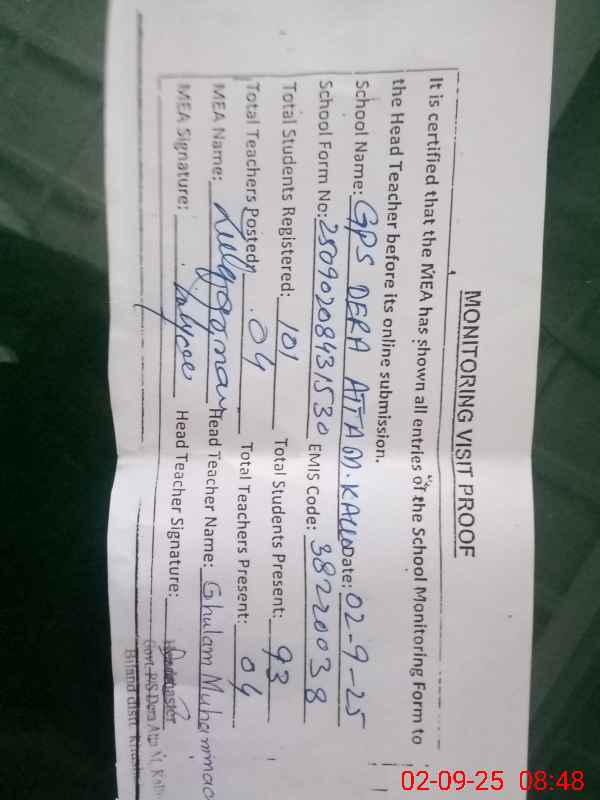 MONITORING VISIT PROOF
It is certified that the MEA has shown all entries of the School Monitoring Form to
the Head Teacher before its online submission.
School Name: GPS DERA ATTA M. KALLO Date: 02-9-25
School Form No: 25090208431530 EMIS Code: 38220038
Total Students Registered: 101 Total Students Present: 93
Total Teachers Posted: 04 Total Teachers Present: 04
MEA Name: Head Teacher Name: Ghulam Muhammad
MEA Signature: Head Teacher Signature:
Headmaster
Govt. P/S Dera Atta M.
02-09-25 08:48